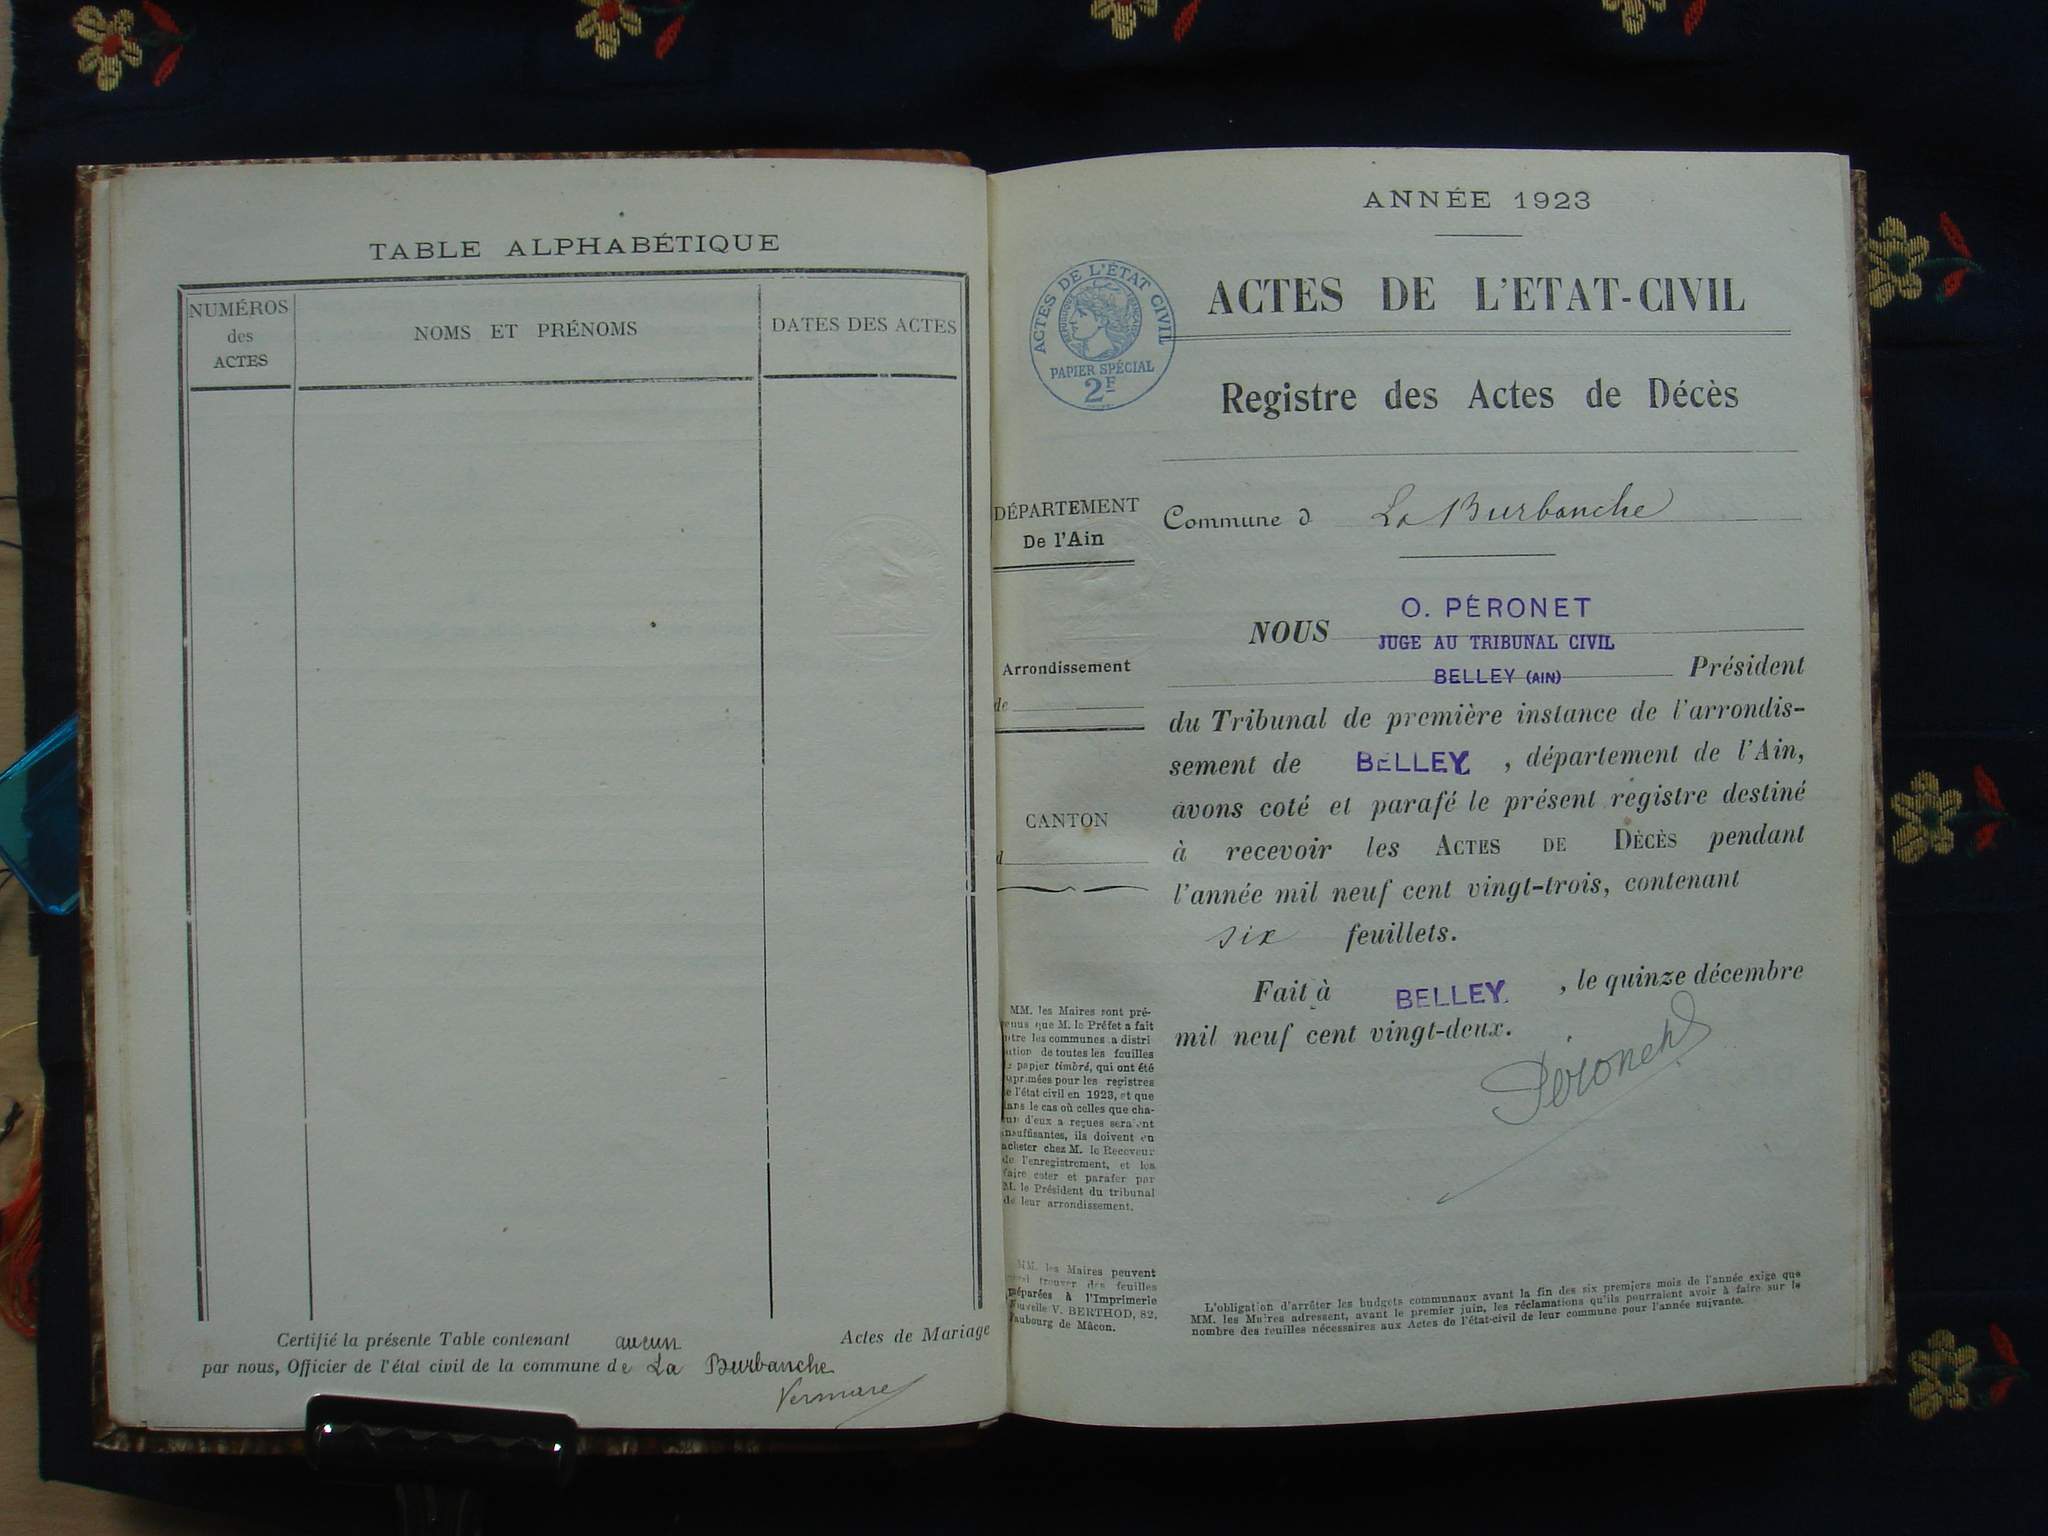 TABLE ALPHABÉTIQUE
NUMÉROS
des
ACTES
NOMS ET PRÉNOMS
DATES DES ACTES
Certifié la présente Table contenant aucun Actes de Mariage
par nous, Officier de l'état civil de la commune de La Burbanche
Vermare
ANNÉE 1923
ACTES DE L'ÉTAT CIVIL
RÉPUBLIQUE FRANÇAISE
PAPIER SPÉCIAL
2F
ACTES DE L'ETAT-CIVIL
Registre des Actes de Décès
DÉPARTEMENT
De l'Ain
Arrondissement
de
CANTON
d
MM. les Maires sont pré-
venus que M. le Préfet a fait
entre les communes la distri
bution de toutes les feuilles
de papier timbré, qui ont été
imprimées pour les registres
de l'état civil en 1923, et que
dans le cas où celles que cha-
cun d'eux a reçues seraient
insuffisantes, ils doivent en
acheter chez M. le Receveur
de l'enregistrement, et les
faire coter et parafer par
M. le Président du tribunal
de leur arrondissement.
MM. les Maires peuvent
trouver des feuilles
préparées à l'Imprimerie
Nouvelle V. BERTHOD, 82,
Faubourg de Mâcon.
Commune d La Burbanche
NOUS O. PÉRONET
JUGE AU TRIBUNAL CIVIL
BELLEY (AIN) Président
du Tribunal de première instance de l'arrondis-
sement de BELLEY, département de l'Ain,
avons coté et parafé le présent registre destiné
à recevoir les ACTES DE DÉCÈS pendant
l'année mil neuf cent vingt-trois, contenant
six feuillets.
Fait à BELLEY, le quinze décembre
mil neuf cent vingt-deux.
Péronet
L'obligation d'arrêter les budgets communaux avant la fin des six premiers mois de l'année exige que
MM. les Maires adressent, avant le premier juin, les réclamations qu'ils pourraient avoir à faire sur le
nombre des feuilles nécessaires aux Actes de l'état-civil de leur commune pour l'année suivante.